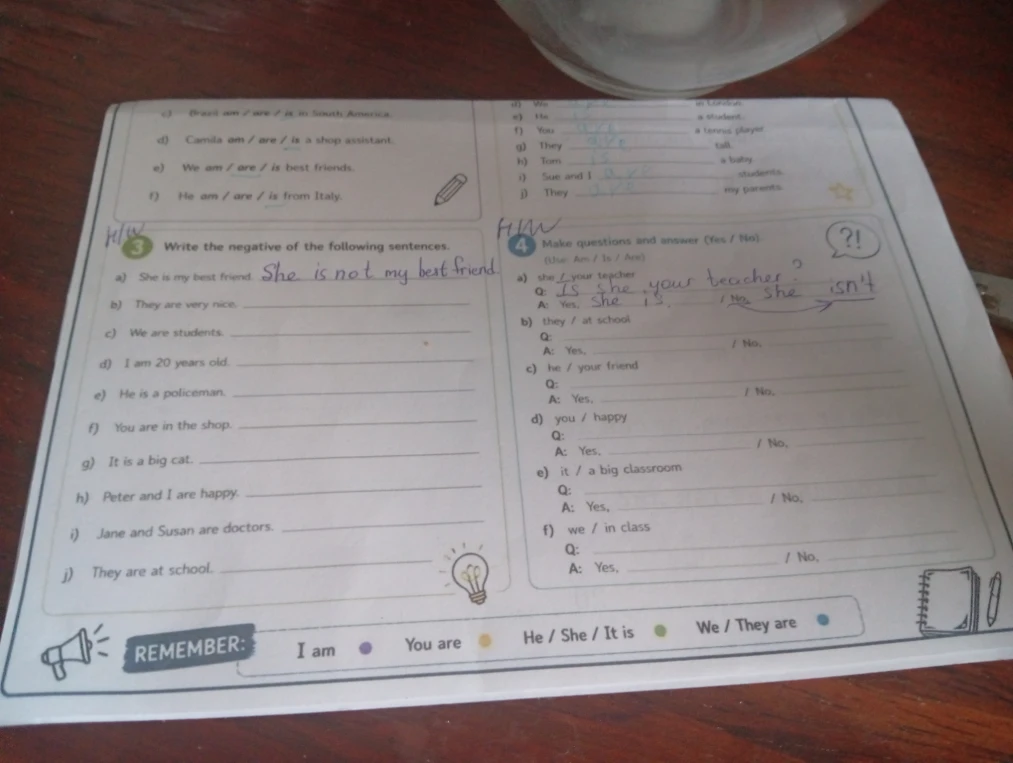 c) Brazil am / are / is in South America.
d) Camila am / are / is a shop assistant.
e) We am / are / is best friends.
f) He am / are / is from Italy.
d) We are in London.
e) He is a student.
f) You are a tennis player.
g) They are tall.
h) Tom is a baby.
i) Sue and I are students.
j) They are my parents.
H/W
3 Write the negative of the following sentences.
a) She is my best friend. She is not my best friend
b) They are very nice.
c) We are students.
d) I am 20 years old.
e) He is a policeman.
f) You are in the shop.
g) It is a big cat.
h) Peter and I are happy.
i) Jane and Susan are doctors.
j) They are at school.
H/W
4 Make questions and answer (Yes / No).
(Use: Am / Is / Are)
?!
a) she / your teacher
Q: Is she your teacher?
A: Yes, she is. / No, she isn't
b) they / at school
Q:
A: Yes, / No,
c) he / your friend
Q:
A: Yes, / No,
d) you / happy
Q:
A: Yes, / No,
e) it / a big classroom
Q:
A: Yes, / No,
f) we / in class
Q:
A: Yes, / No,
REMEMBER: I am You are He / She / It is We / They are